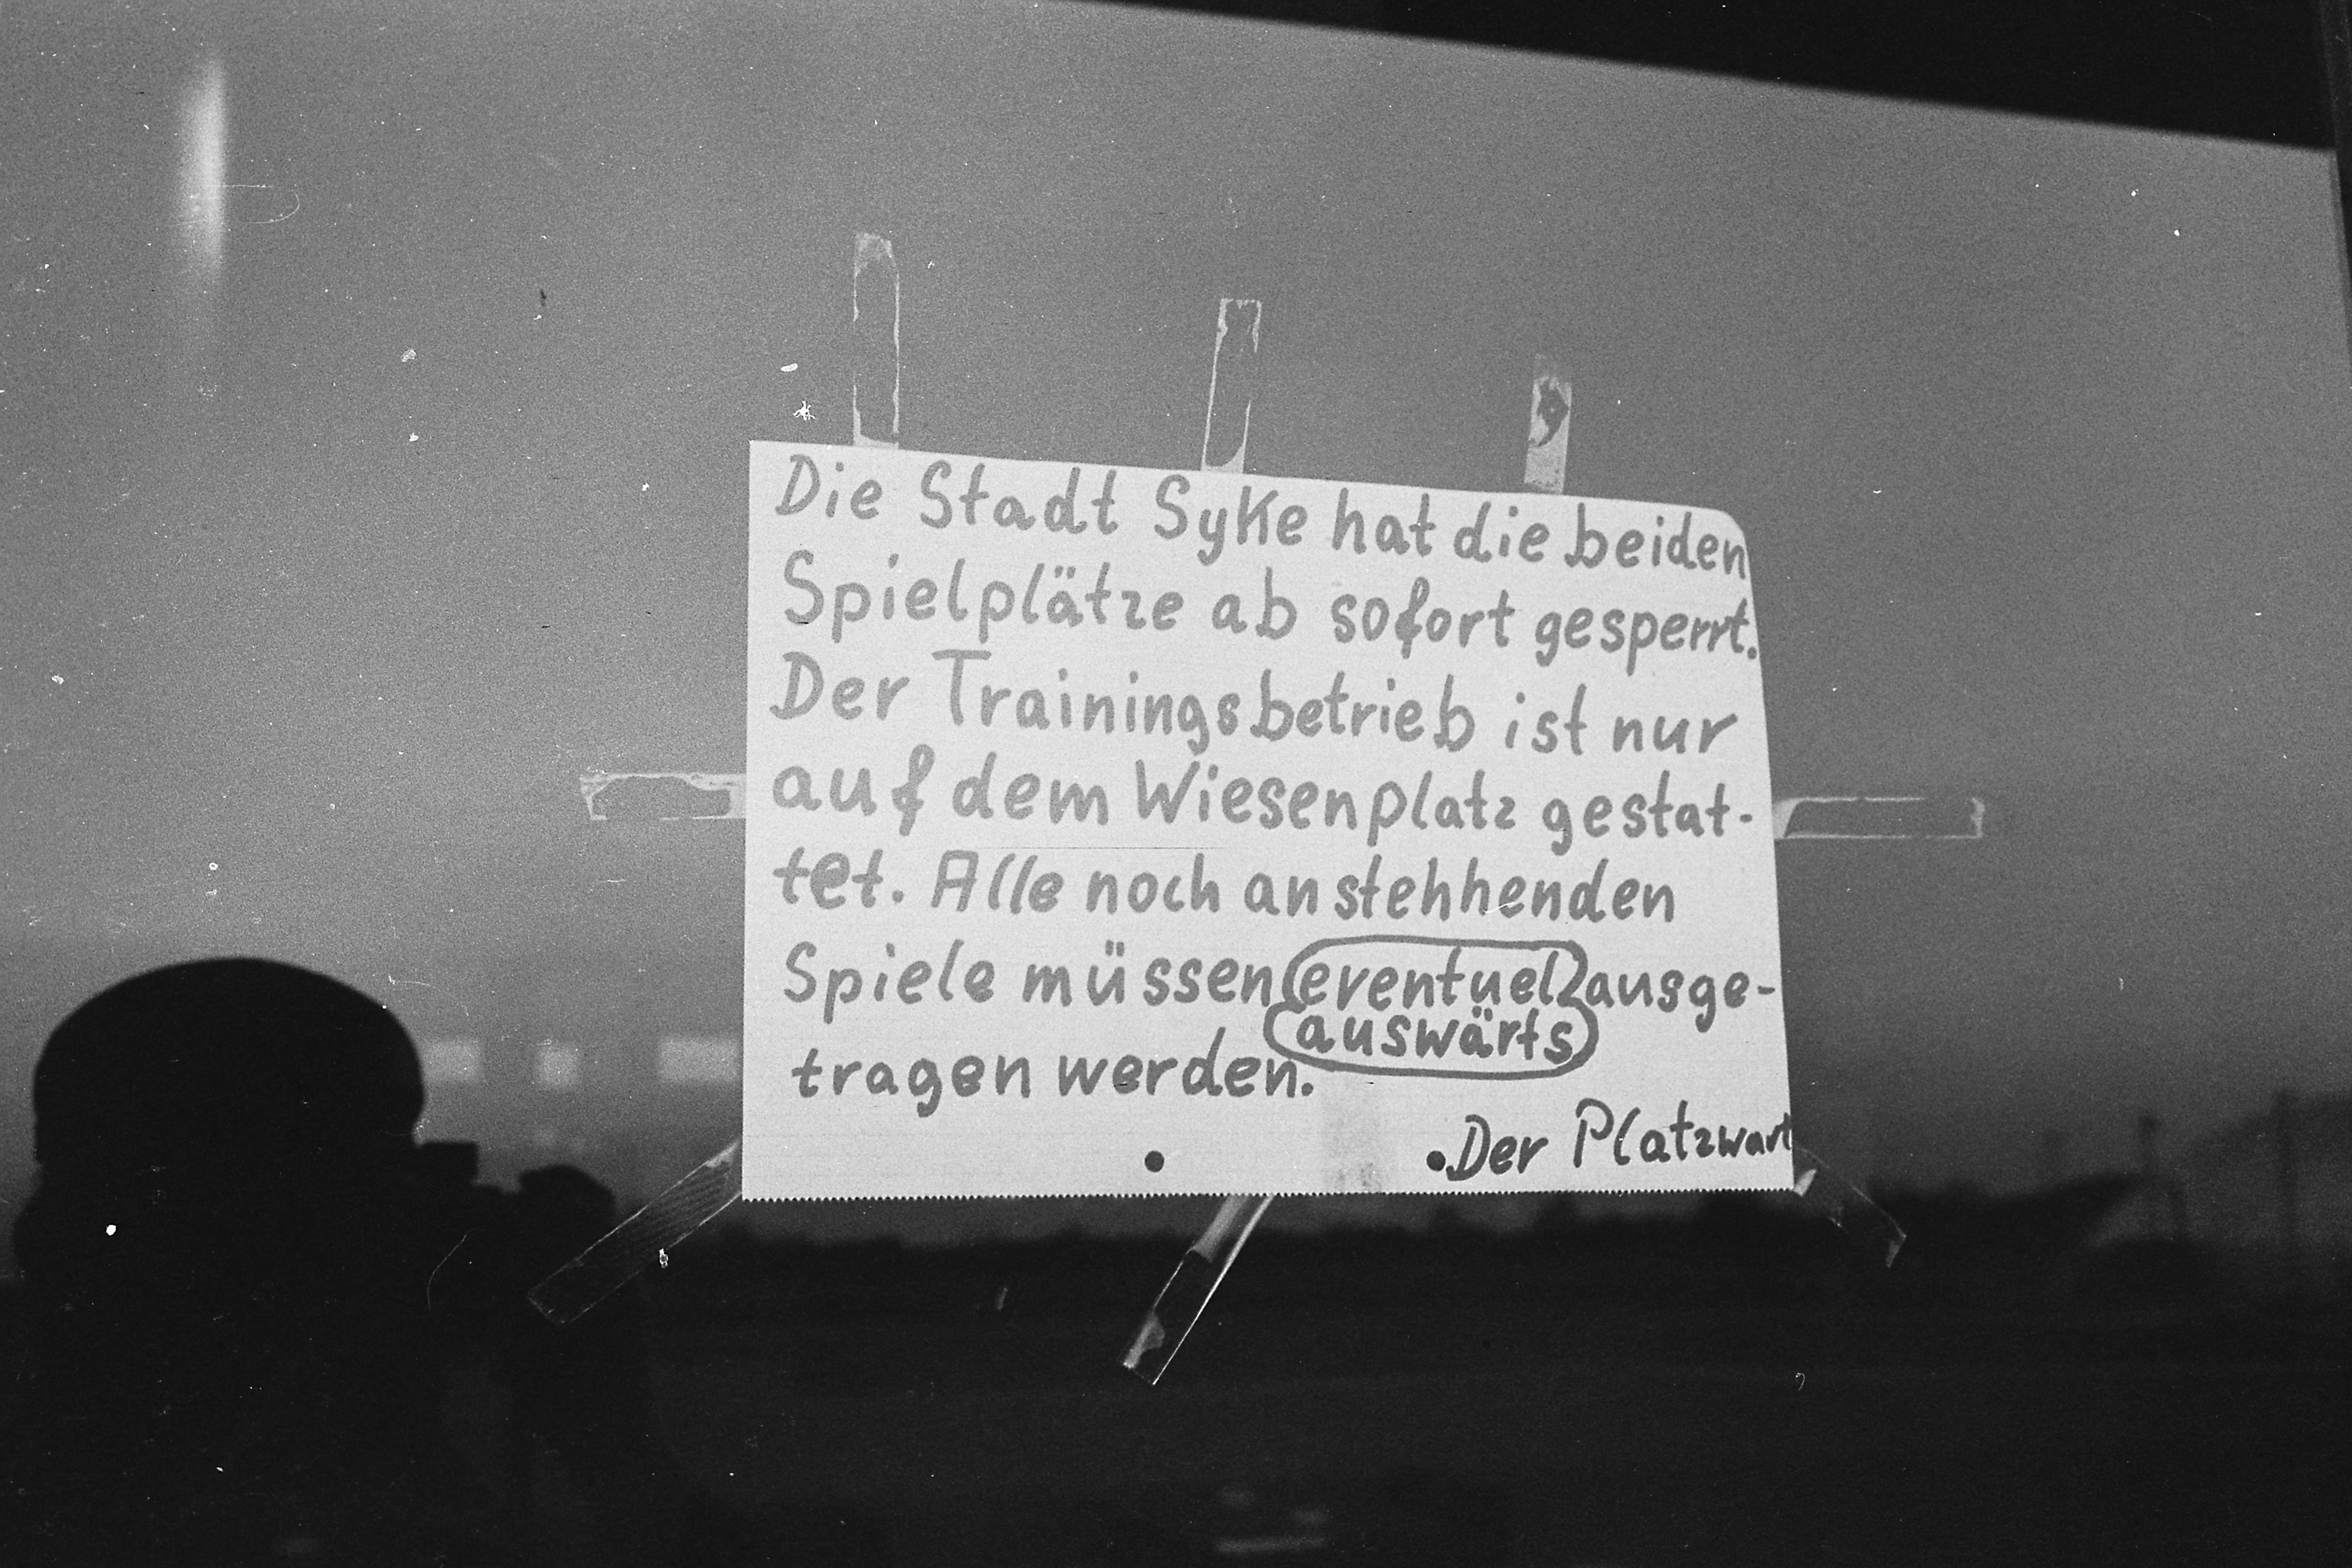 Die Stadt Syke hat die beiden
Spielplätze ab sofort gesperrt.
Der Trainingsbetrieb ist nur
auf dem Wiesenplatz gestat-
tet. Alle noch anstehhenden
Spiele müssen eventuel ausge-
auswärts
tragen werden.
Der Platzwart